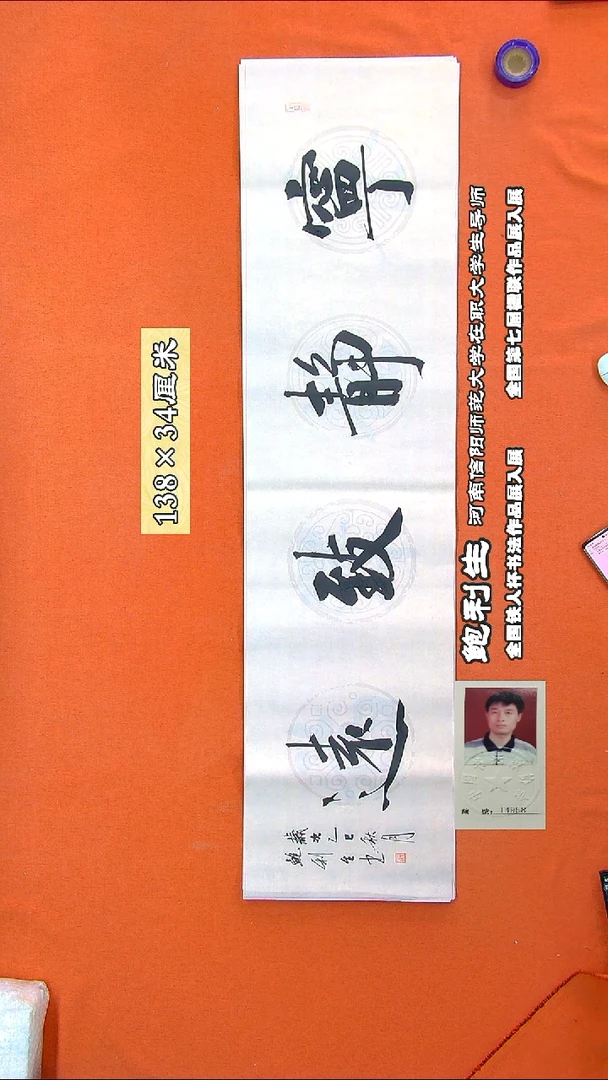 寧靜致遠
歲次乙巳秋月
鮑利生書
138×34厘米
鲍利生
河南信阳师范大学在职大学生导师
全国铁人杯书法作品展入展
全国第七届楹联作品展入展